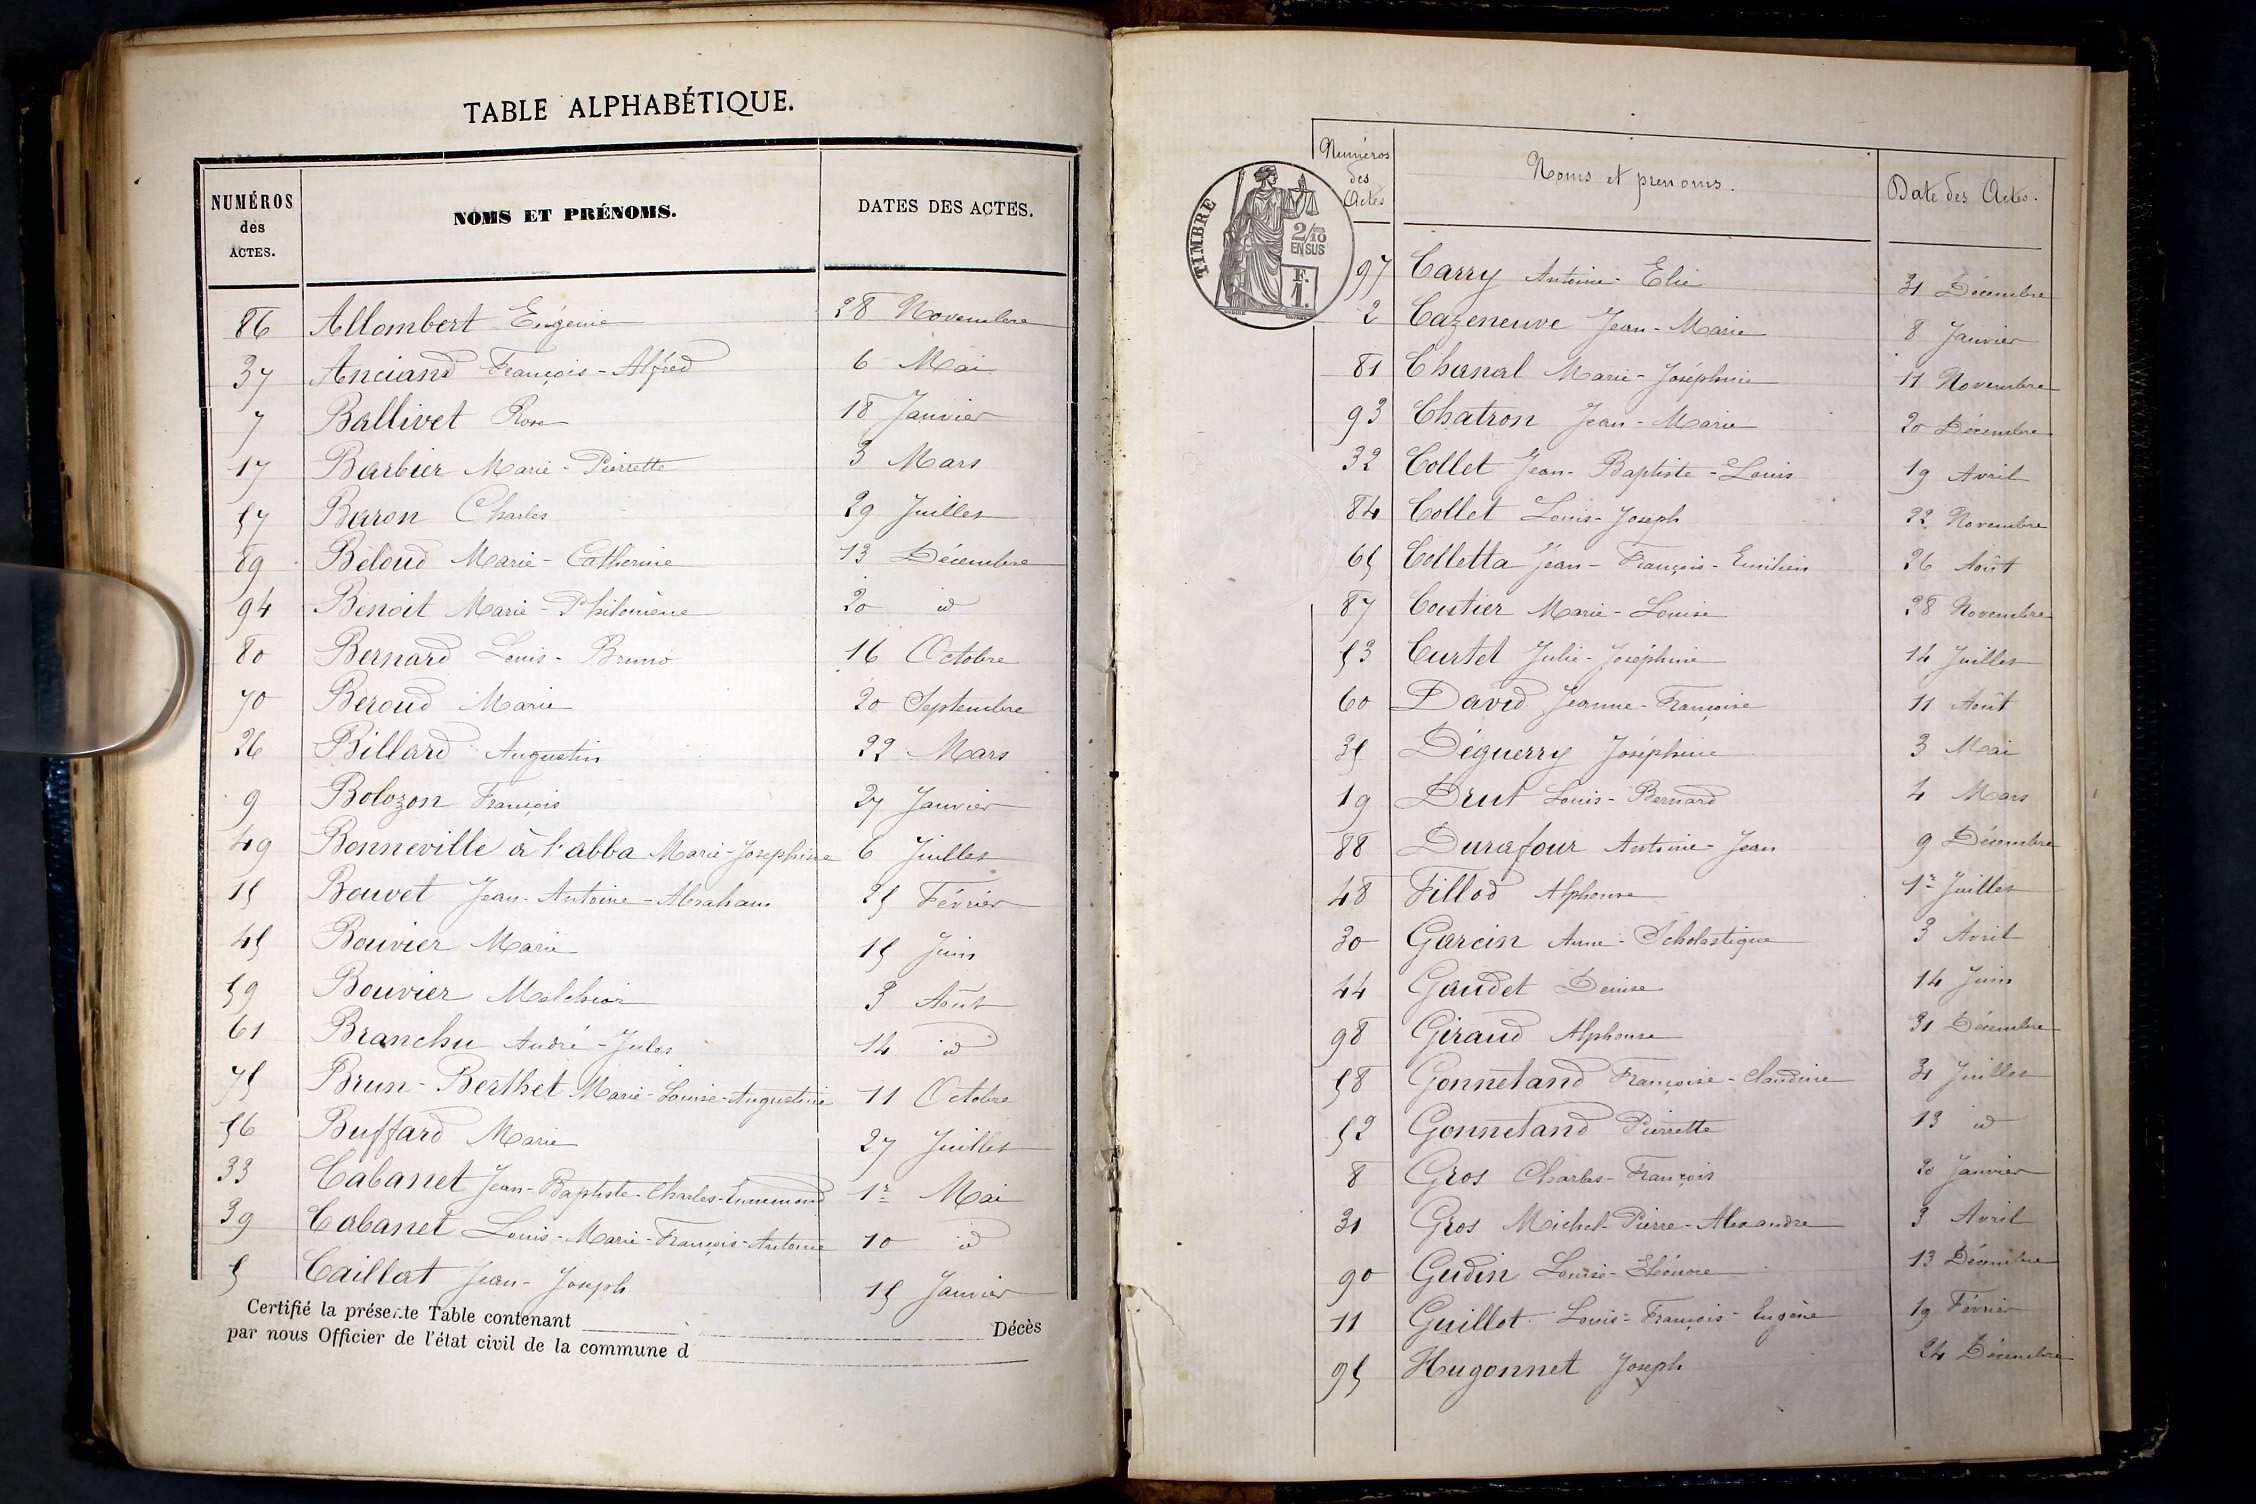 TABLE ALPHABÉTIQUE.
NUMÉROS des ACTES. NOMS ET PRÉNOMS. DATES DES ACTES.
86 Allombert Eugénie 28 Novembre
37 Anciand François-Alfred 6 Mai
7 Ballivet Rose 18 Janvier
17 Barbier Marie-Pierrette 3 Mars
57 Baron Charles 29 Juillet
89 Béloud Marie-Catherine 13 Décembre
94 Benoit Marie-Philomène 20 id
80 Bernard Louis-Bruno 16 Octobre
70 Beroud Marie 20 Septembre
26 Billard Augustin 22 Mars
9 Bolozon François 27 Janvier
49 Bonneville à l'abba Marie-Josephine 6 Juillet
15 Bouvet Jean-Antoine-Abraham 25 Février
45 Bouvier Marie 15 Juin
59 Bouvier Melchior 3 Août
61 Branchu André-Jules 14 id
75 Brun-Berthet Marie-Louise-Augustine 11 Octobre
56 Buffard Marie 27 Juillet
33 Cabanet Jean-Baptiste-Charles-Emmemond 1er Mai
39 Cabanet Louis-Marie-François-Antoine 10 id
5 Caillat Jean-Joseph 15 Janvier
Certifié la présente Table contenant Décès
par nous Officier de l'état civil de la commune d
TIMBRE
2/10
EN SUS
F.
1.
Numéros des Actes Noms et prenoms. Date des Actes.
97 Carry Antoine-Elie 31 Décembre
2 Cazeneuve Jean-Marie 8 Janvier
81 Chanal Marie-Joséphine 11 Novembre
93 Chatron Jean-Marie 20 Décembre
32 Collet Jean-Baptiste-Louis 19 Avril
84 Collet Louis-Joseph 22 Novembre
65 Colletta Jean-François-Emilien 26 Août
87 Coutier Marie-Louise 28 Novembre
53 Curtet Julie-Joséphine 14 Juillet
60 David Jeanne-Françoise 11 Août
35 Déguerry Joséphine 3 Mai
19 Drut Louis-Bernard 4 Mars
88 Durafour Antoine-Jean 9 Décembre
48 Fillod Alphonse 1er Juillet
30 Garcin Anne-Scholastique 3 Avril
44 Gaudet Denise 14 Juin
98 Giraud Alphonse 31 Décembre
58 Gonnetand Françoise-Claudine 31 Juillet
52 Gonnetand Pierrette 13 id
8 Gros Charles-François 20 Janvier
31 Gros Michel-Pierre-Alexandre 3 Avril
90 Gudin Louise-Eléonore 13 Décembre
11 Guillot Louis-François-Eugène 19 Février
95 Hugonnet Joseph 24 Décembre